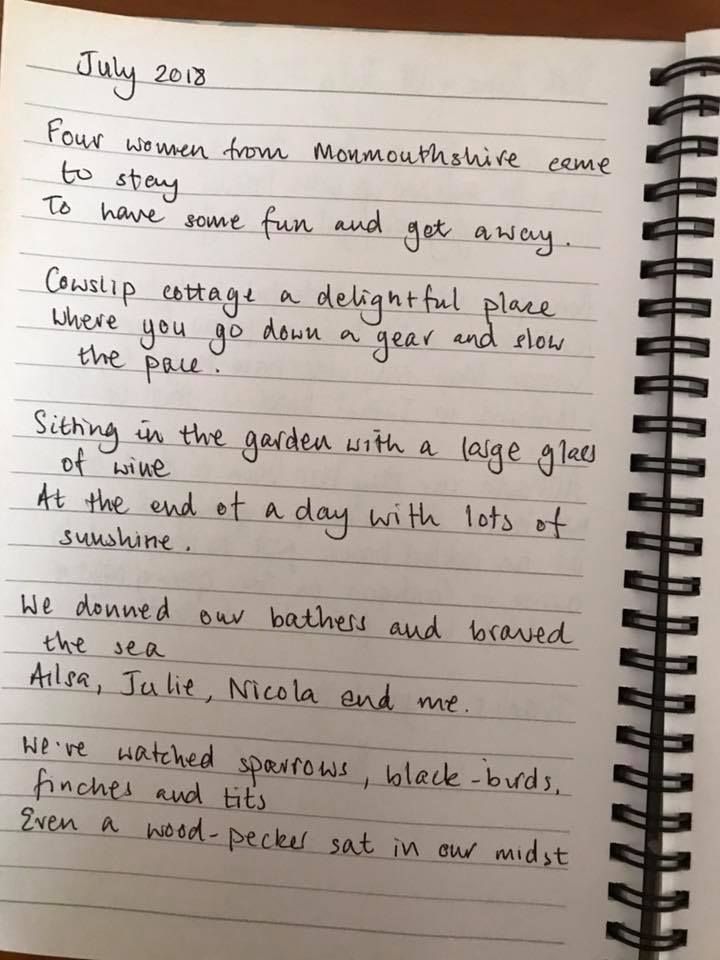 July 2018
Four women from Monmouthshire came
to stay
To have some fun and get away.
Cowslip cottage a delightful place
Where you go down a gear and slow
the pace.
Sitting in the garden with a large glass
of wine
At the end of a day with lots of
sunshine.
We donned our bathers and braved
the sea
Ailsa, Julie, Nicola and me.
We've watched sparrows, black-birds,
finches and tits
Even a wood-pecker sat in our midst